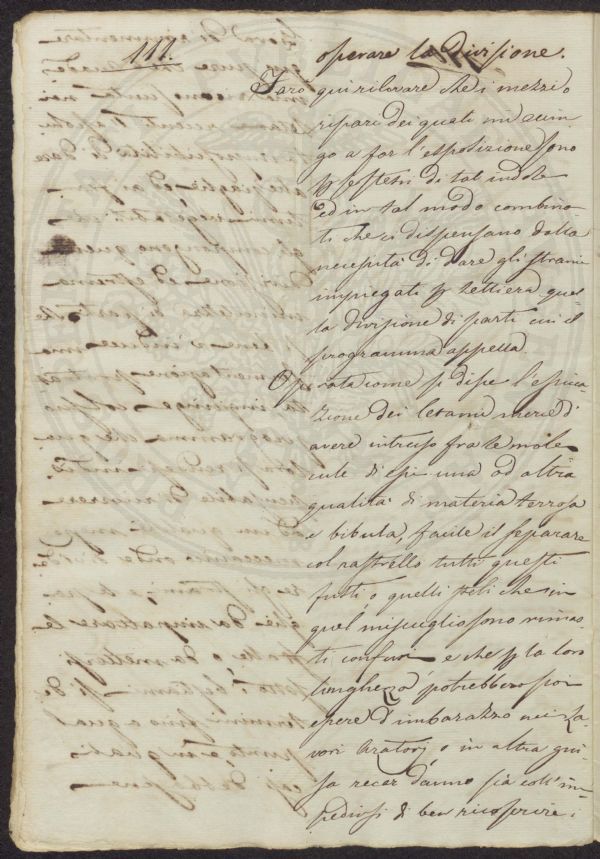 111.
operare la Divisione.
Farò qui rilevare che i mezzi o
ripari dei quali mi accin-
go a far l'esposizione sono
pensieri di tal indole
ed in tal modo combina-
ti che ci dispensano dalla
necessità di dare gli strami
impiegati p lettiera quel-
la divisione di parti cui il
programma appella.
Operata come si disse l'essica-
zione dei letami mercè d'
avere intruso fra le mole-
cule di essi una od altra
qualità di materia terrosa
e bibula, facile il separare
col rastrello tutti questi
fusti, o quelli steli che in
quel miscuglio sono rimas-
ti confusi e che p la loro
lunghezza potrebbero poi
essere d'imbarazzo nei La-
vori Aratorj o in altra gui-
sa recar danno sia coll'im-
pedirsi di ben ricoprire i